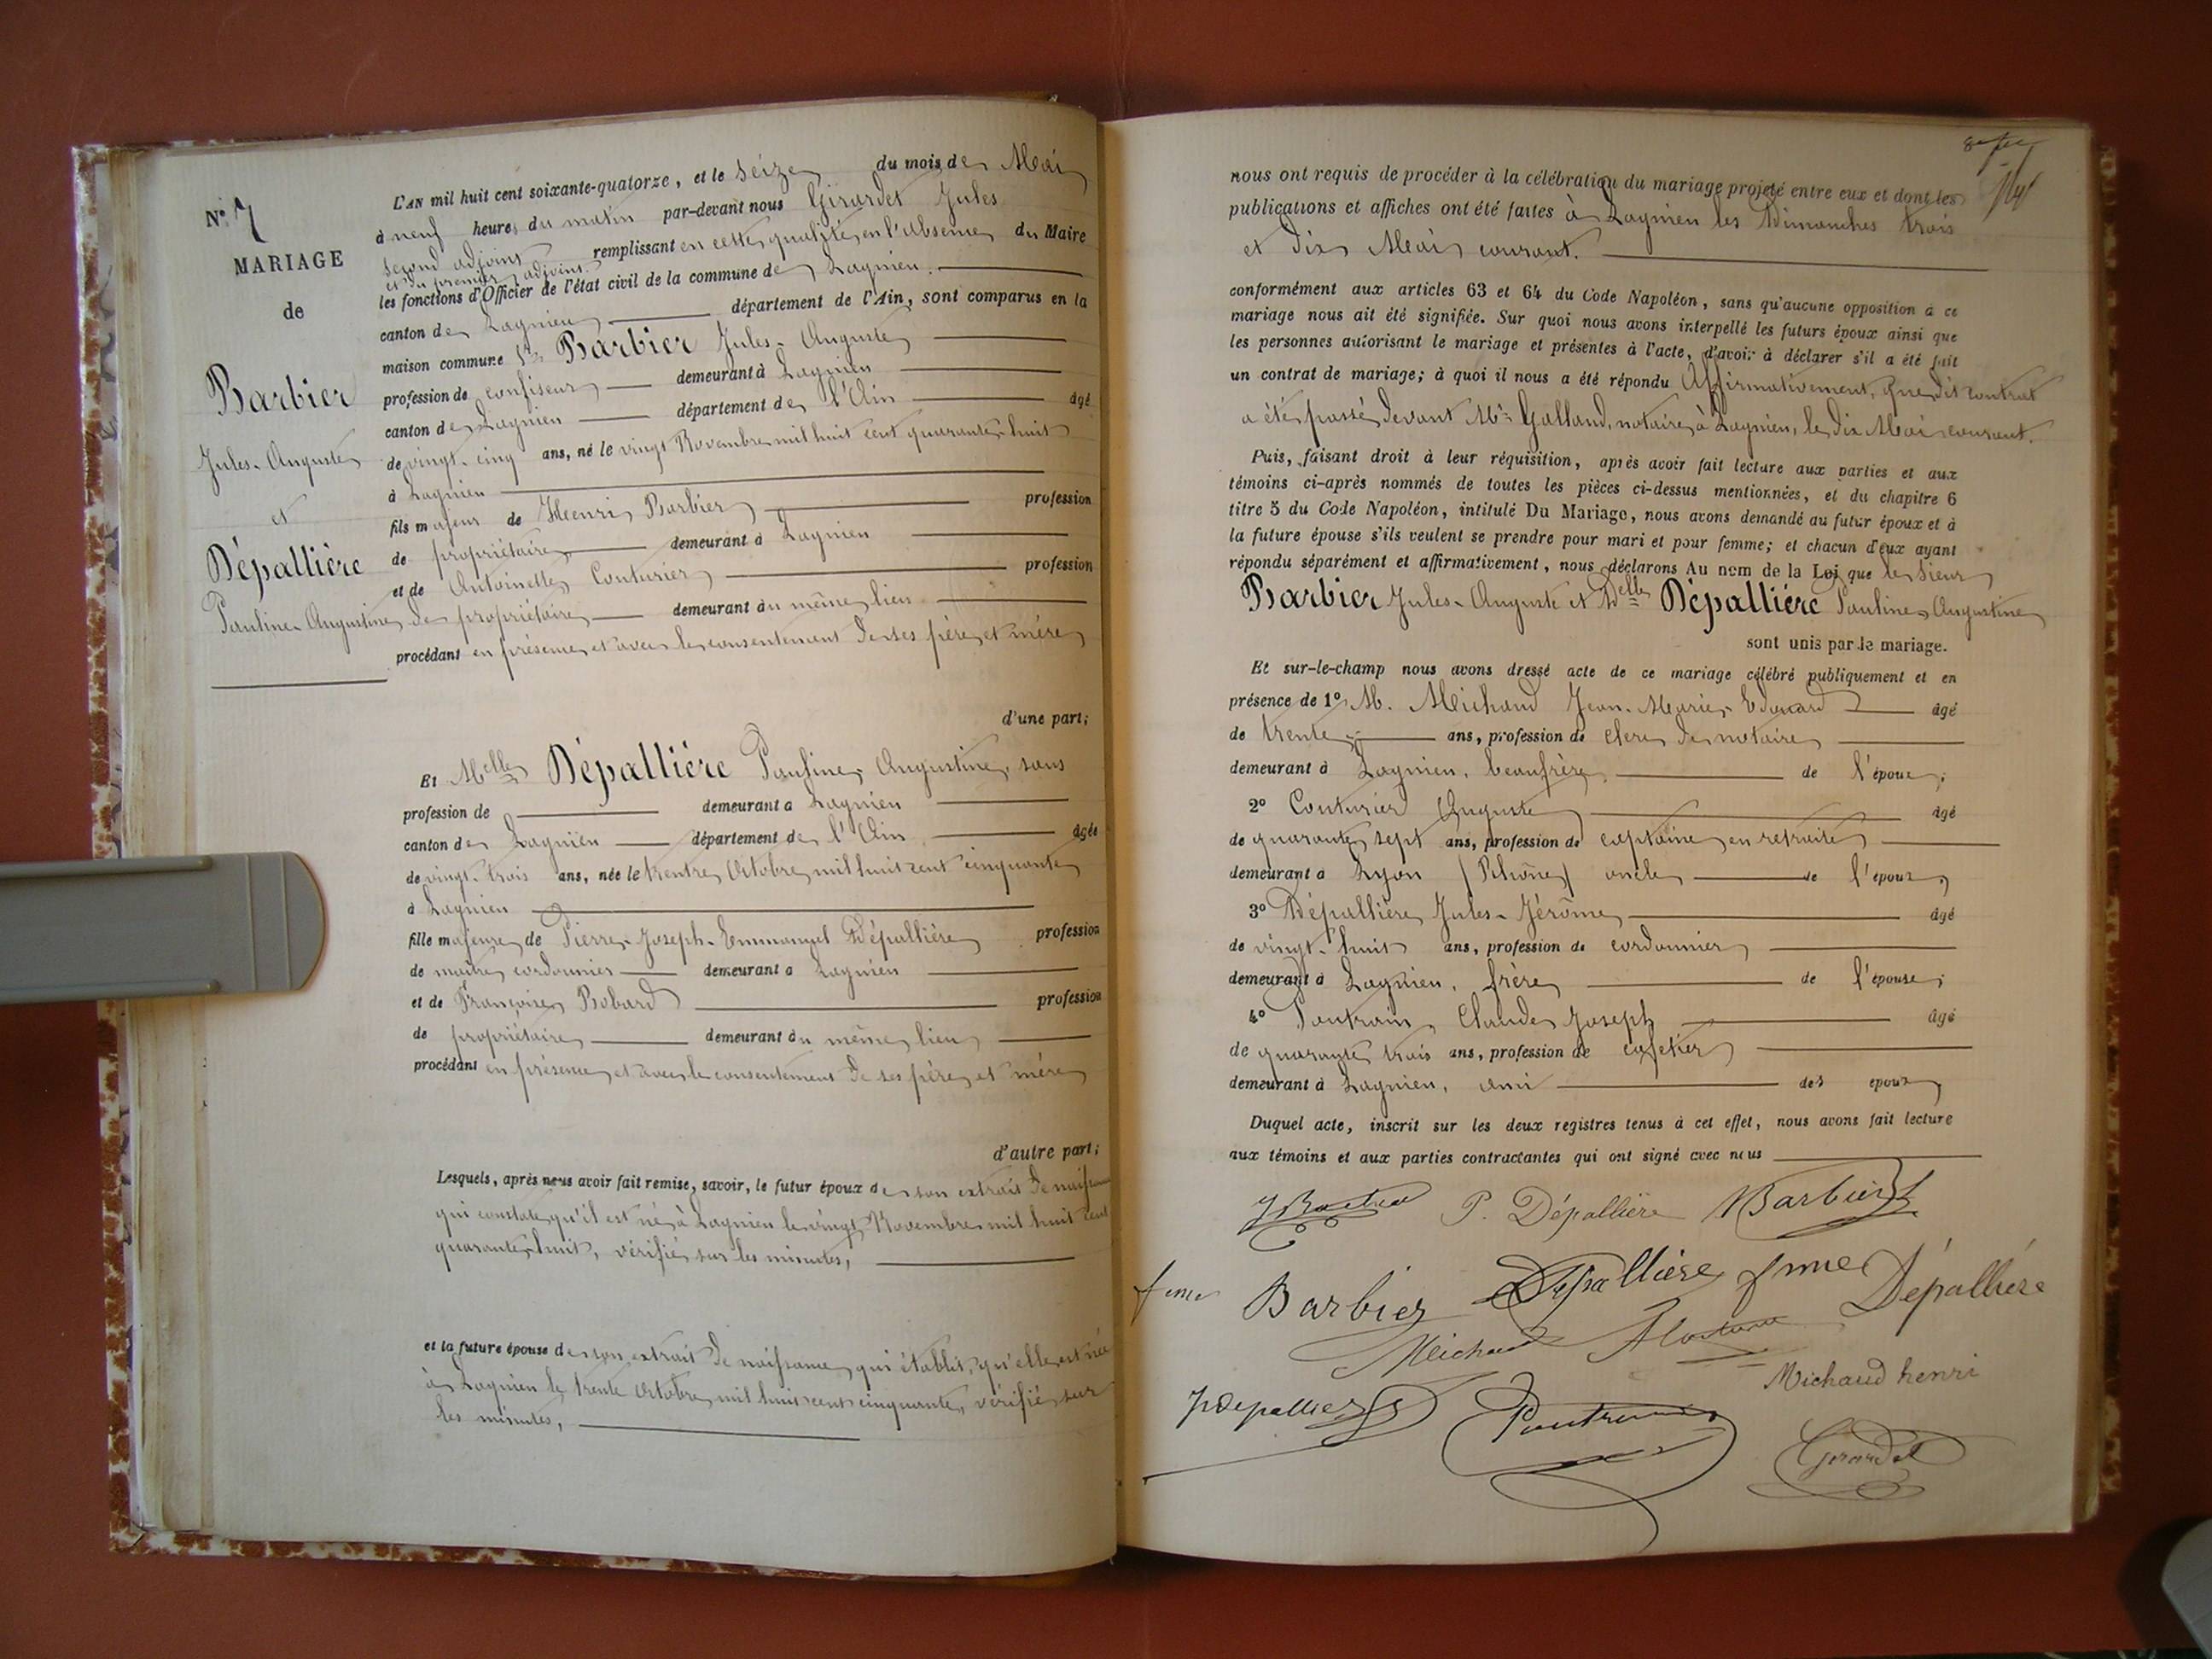 N° 7
MARIAGE
de
Barbier
Jules-Auguste
et
Dépallière
Pauline-Augustine
L'AN mil huit cent soixante-quatorze, et le seize du mois de Mai
à neuf heures du matin par-devant nous Girardet Jules
second adjoint remplissant en cette qualité, en l'absence du Maire
et du premier adjoint
les fonctions d'Officier de l'état civil de la commune de Lagnieu.
canton de Lagnieu département de l'Ain, sont comparus en la
maison commune Sr Barbier Jules-Auguste
profession de confiseur demeurant à Lagnieu
canton de Lagnieu département de l'Ain âgé
de vingt-cinq ans, né le vingt Novembre mil huit cent quarante-huit
à Lagnieu
fils majeur de Henri Barbier profession
de propriétaire demeurant à Lagnieu
et de Antoinette Couturier profession
de propriétaire demeurant au même lieu
procédant en présence et avec le consentement de ses père et mère
d'une part;
Et Melle Dépallière Pauline-Augustine, sans
profession de demeurant à Lagnieu
canton de Lagnieu département de l'Ain âgée
de vingt-trois ans, née le trente Octobre mil huit cent cinquante
à Lagnieu
fille majeure de Pierre-Joseph-Emmanuel Dépallière profession
de maître cordonnier demeurant à Lagnieu
et de Françoise Bobard profession
de propriétaire demeurant au même lieu
procédant en présence et avec le consentement de ses père et mère
d'autre part;
Lesquels, après nous avoir fait remise, savoir, le futur époux de son extrait de naissance
qui constate qu'il est né à Lagnieu le vingt Novembre mil huit cent
quarante-huit, vérifié sur les minutes,
et la future épouse de son extrait de naissance qui établit, qu'elle est née
à Lagnieu le trente Octobre mil huit cent cinquante, vérifié sur
les minutes,
nous ont requis de procéder à la célébration du mariage projeté entre eux et dont les
publications et affiches ont été faites à Lagnieu les Dimanches trois
et dix Mai courant.
conformément aux articles 63 et 64 du Code Napoléon, sans qu'aucune opposition à ce
mariage nous ait été signifiée. Sur quoi nous avons interpellé les futurs époux ainsi que
les personnes autorisant le mariage et présentes à l'acte, d'avoir à déclarer s'il a été fait
un contrat de mariage; à quoi il nous a été répondu Affirmativement, que dit contrat
a été passé devant Me Galland, notaire à Lagnieu, le dix Mai courant.
Puis, faisant droit à leur réquisition, après avoir fait lecture aux parties et aux
témoins ci-après nommés de toutes les pièces ci-dessus mentionnées, et du chapitre 6
titre 5 du Code Napoléon, intitulé Du Mariage, nous avons demandé au futur époux et à
la future épouse s'ils veulent se prendre pour mari et pour femme; et chacun d'eux ayant
répondu séparément et affirmativement, nous déclarons Au nom de la Loi que le sieur
Barbier Jules-Auguste et Delle Dépallière Pauline-Augustine
sont unis par le mariage.
Et sur-le-champ nous avons dressé acte de ce mariage célébré publiquement et en
présence de 1° M. Michaud Jean-Marie-Edouard âgé
de trente ans, profession de clerc de notaire
demeurant à Lagnieu, beaufrère de l'époux;
2° Couturier Auguste âgé
de quarante sept ans, profession de captaine en retraite
demeurant à Lyon (Rhône) oncle de l'époux,
3° Dépallière Jules-Jérôme âgé
de vingt-huit ans, profession de cordonnier
demeurant à Lagnieu, frère de l'épouse;
4° Poutrain Claude Joseph âgé
de quarante trois ans, profession de cafetier
demeurant à Lagnieu, ami des époux,
Duquel acte, inscrit sur les deux registres tenus à cet effet, nous avons fait lecture
aux témoins et aux parties contractantes qui ont signé avec nous
P. Dépallière Barbier
fme Barbier Dépallière fme Dépallière
Michaud
Michaud henri
JDepallière Poutrain
Girardet